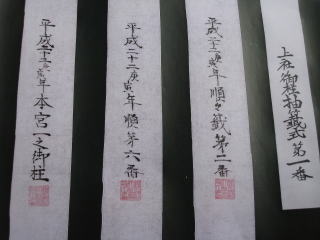 上社御柱抽籤式第一番
平成二十二庚寅年順々籤第二番
平成二十二庚寅年順第六番
平成二十二庚寅年本宮一之御柱